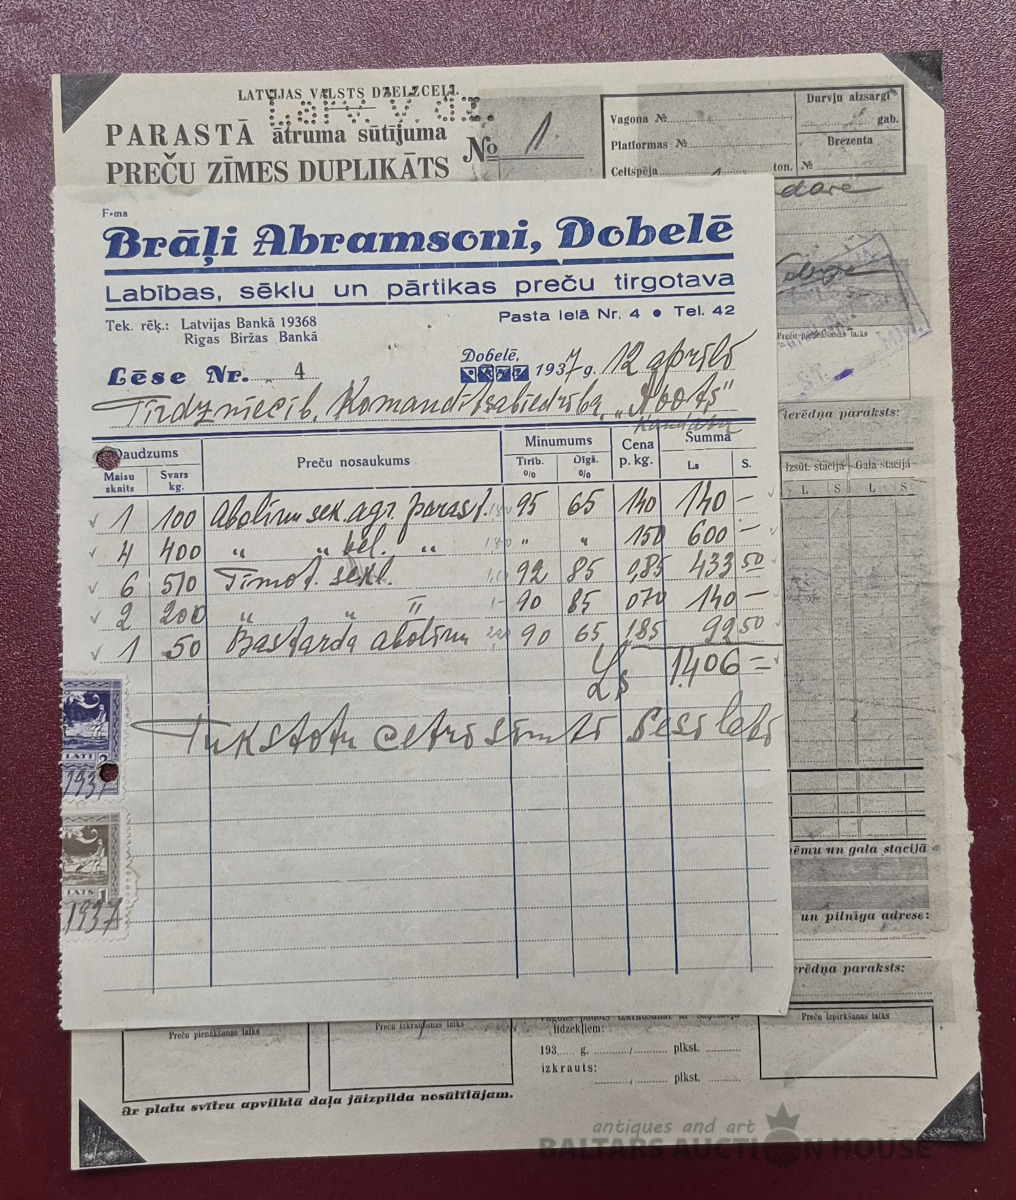 LATVIJAS VALSTS DZELZCEĻI.
Latv. v. dz.
PARASTĀ ātruma sūtījuma
PREČU ZĪMES DUPLIKĀTS
№ 1.
Vagona №
Platformas №
Celtspēja ton.
Durvju aizsargi
gab.
Brezenta
№
F-ma
Brāļi Abramsoni, Dobelē
Labības, sēklu un pārtikas preču tirgotava
Tek. rēķ.: Latvijas Bankā 19368
Rīgas Biržas Bankā
Pasta ielā Nr. 4 • Tel. 42
Lēse Nr. 4
Dobelē, 1937 g. 12 aprīlī
Tirdzniecīb. Komandītsabiedrība
Daudzums Preču nosaukums Minumums Cena p. kg. Summa
Maisu skaits Svars kg. Tīrīb. % Dīgā. % Ls S.
1 100 Āboliņu sek. agr. parast. 95 65 1,40 140 —
4 400 " " vēl. " " " 1,50 600 —
6 510 Timot. sēkl. 92 85 0,85 433 50
2 200 " " II 90 85 0,70 140 —
1 50 Bastarda āboliņu 90 65 1,85 92 50
Ls 1.406 =
Tūkstotu četri simti seši lati
LATI 2
1937
LATS 1
1937
Preču pienākšanas laiks
ierēdņa paraksts:
Izsūt. stacijā Gala stacijā
L S L S
un gala stacijā
un pilnīga adrese:
ierēdņa paraksts:
Preču pienākšanas laiks
Preču izkraušanas laiks
līdzekļiem:
193 g. / plkst.
izkrauts:
/ plkst.
Preču izpirkšanas laiks
Ar platu svītru apvilktā daļa jāizpilda nosūtītājam.
antiques and art
BALTARS AUCTION HOUSE